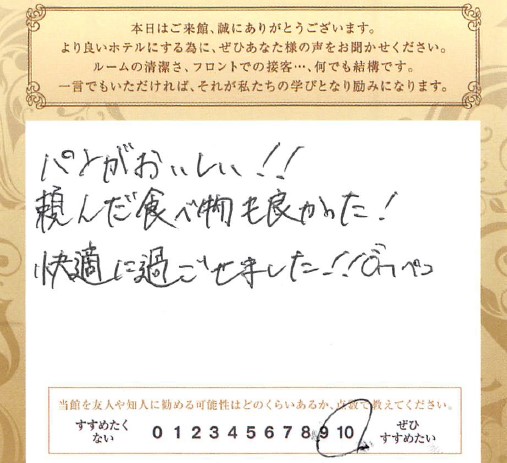 本日はご来館、誠にありがとうございます。
より良いホテルにする為に、ぜひあなた様の声をお聞かせください。
ルームの清潔さ、フロントでの接客…、何でも結構です。
一言でもいただければ、それが私たちの学びとなり励みになります。
パンがおいしい!!
頼んだ食べ物も良かった!
快適に過ごせました!!
当館を友人や知人に勧める可能性はどのくらいあるか、点数で教えてください。
すすめたくない 0 1 2 3 4 5 6 7 8 9 10 ぜひすすめたい